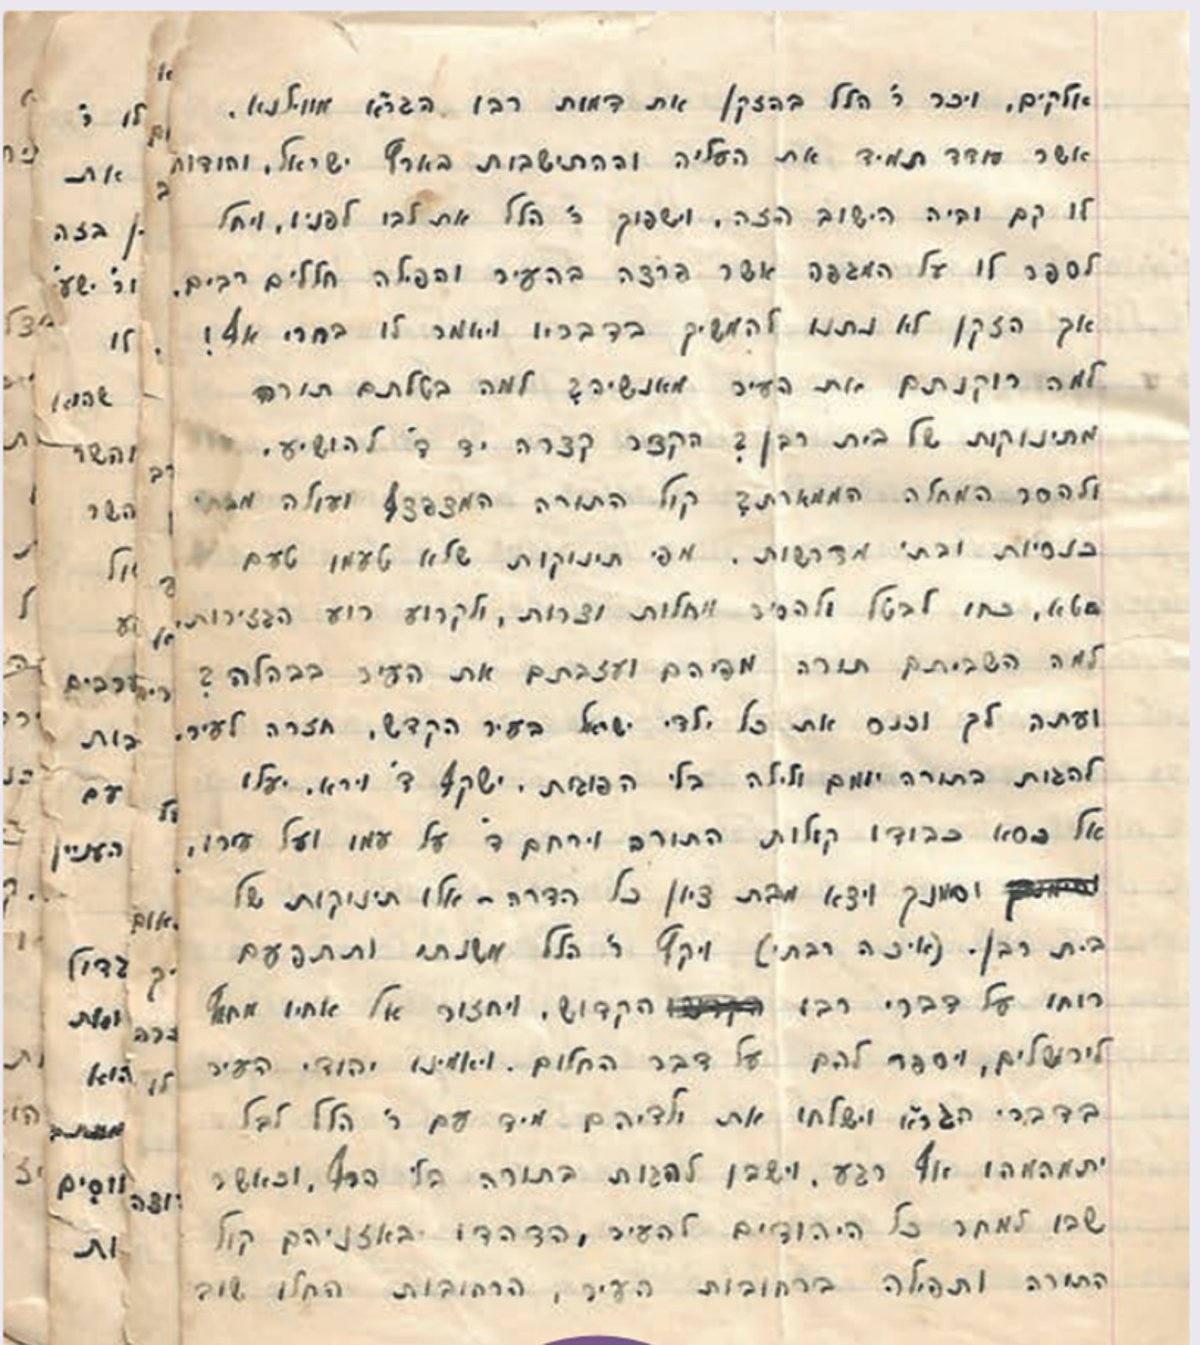 אלקים. ויכר ר' הלל בהזקן את דמות רבו הגר"א מווילנא.
אשר עודד תמיד את העליה וההתישבות בארץ ישראל, והודות
לו קם והיה הישוב הזה. וישפוך ר' הלל את לבו לפניו, ויחל
לספר לו על המגפה אשר פרצה בהעיר והפילה חללים רבים.
אך הזקן לא נתנו להמשיך בדבריו ויאמר לו בחרי אף!
למה רוקנתם את העיר מאנשיה? למה בטלתם תורה
מתינוקות של בית רבן? הקצר קצרה יד ד' להושיע.
ולהסר המחלה הממארת? קול התורה המצפצף ועולה מבתי
כנסיות ובתי מדרשות. מפי תינוקות שלא טעמו טעם
חטא, כחו לבטל ולהסיר מחלות וצרות, ולקרוע רוע הגזירות.
למה השביתם תורה מפיהם ועזבתם את העיר בבהלה?
ועתה לך וכנס את כל ילדי ישראל בעיר הקדש. חזרה לעיר.
להגות בתורה יומם ולילה בלי הפוגות. ישקיף ד' וירא. יעלו
אל כסא כבודו קולות התורה וירחם ד' על עמו ועל עירו.
וסמנך ויצא מבת ציון כל הדרה - אלו תינוקות של
בית רבן. (איכה רבתי) ויקץ ר' הלל משנתו ותתפעם
רוחו על דברי רבו הקדוש. ויחזור אל אחיו מחוץ
לירושלים, ויספר להם על דבר החלום. ויאמינו יהודי העיר
בדברי הגר"א וישלחו את ילדיהם מיד עם ר' הלל לבל
יתמהמהו אף רגע. וישבו להגות בתורה בלי הרף. וכאשר
שבו למחר כל היהודים להעיר, הדהדו באזניהם קול
התורה ותפילה ברחובות העיר, הרחובות החלו שוב
לו ר'
את
בזה
ור' ישע'
לו
שהוא
והשר
השר
ערבים
עם
העניין
גדול
הוא